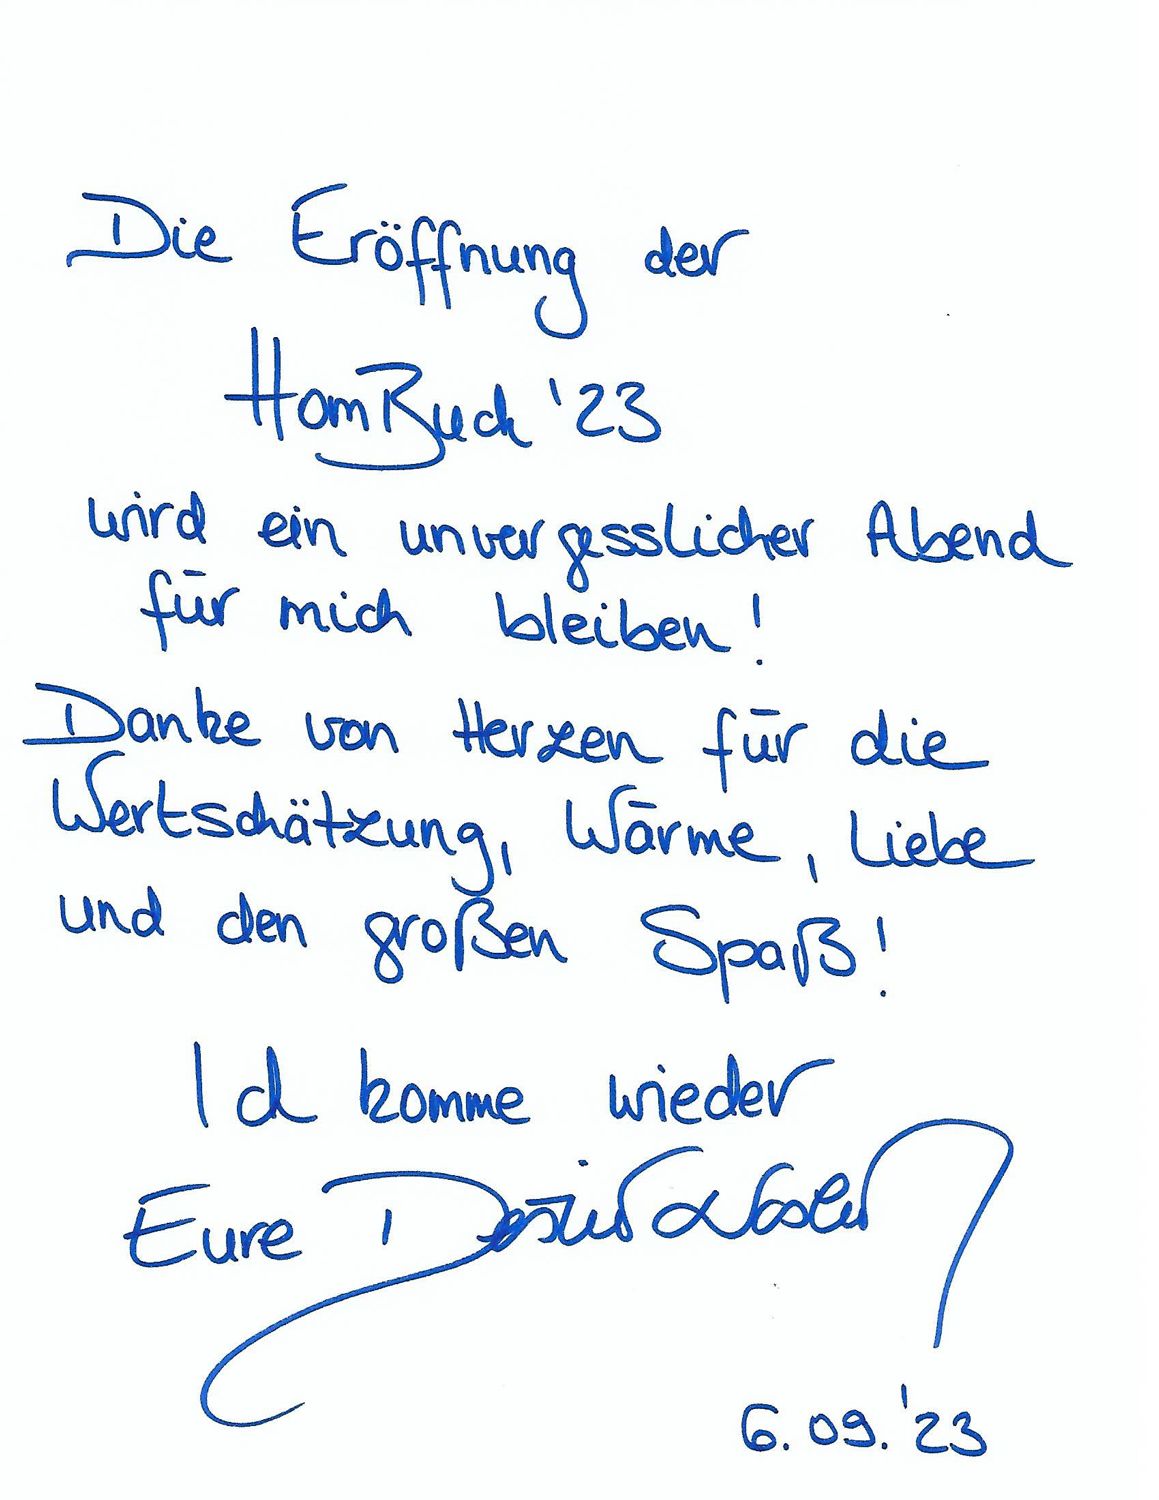 Die Eröffnung der
HomBuch '23
wird ein unvergesslicher Abend
für mich bleiben!
Danke von Herzen für die
Wertschätzung, Wärme, Liebe
und den großen Spaß!
Ich komme wieder
Eure
6.09.'23